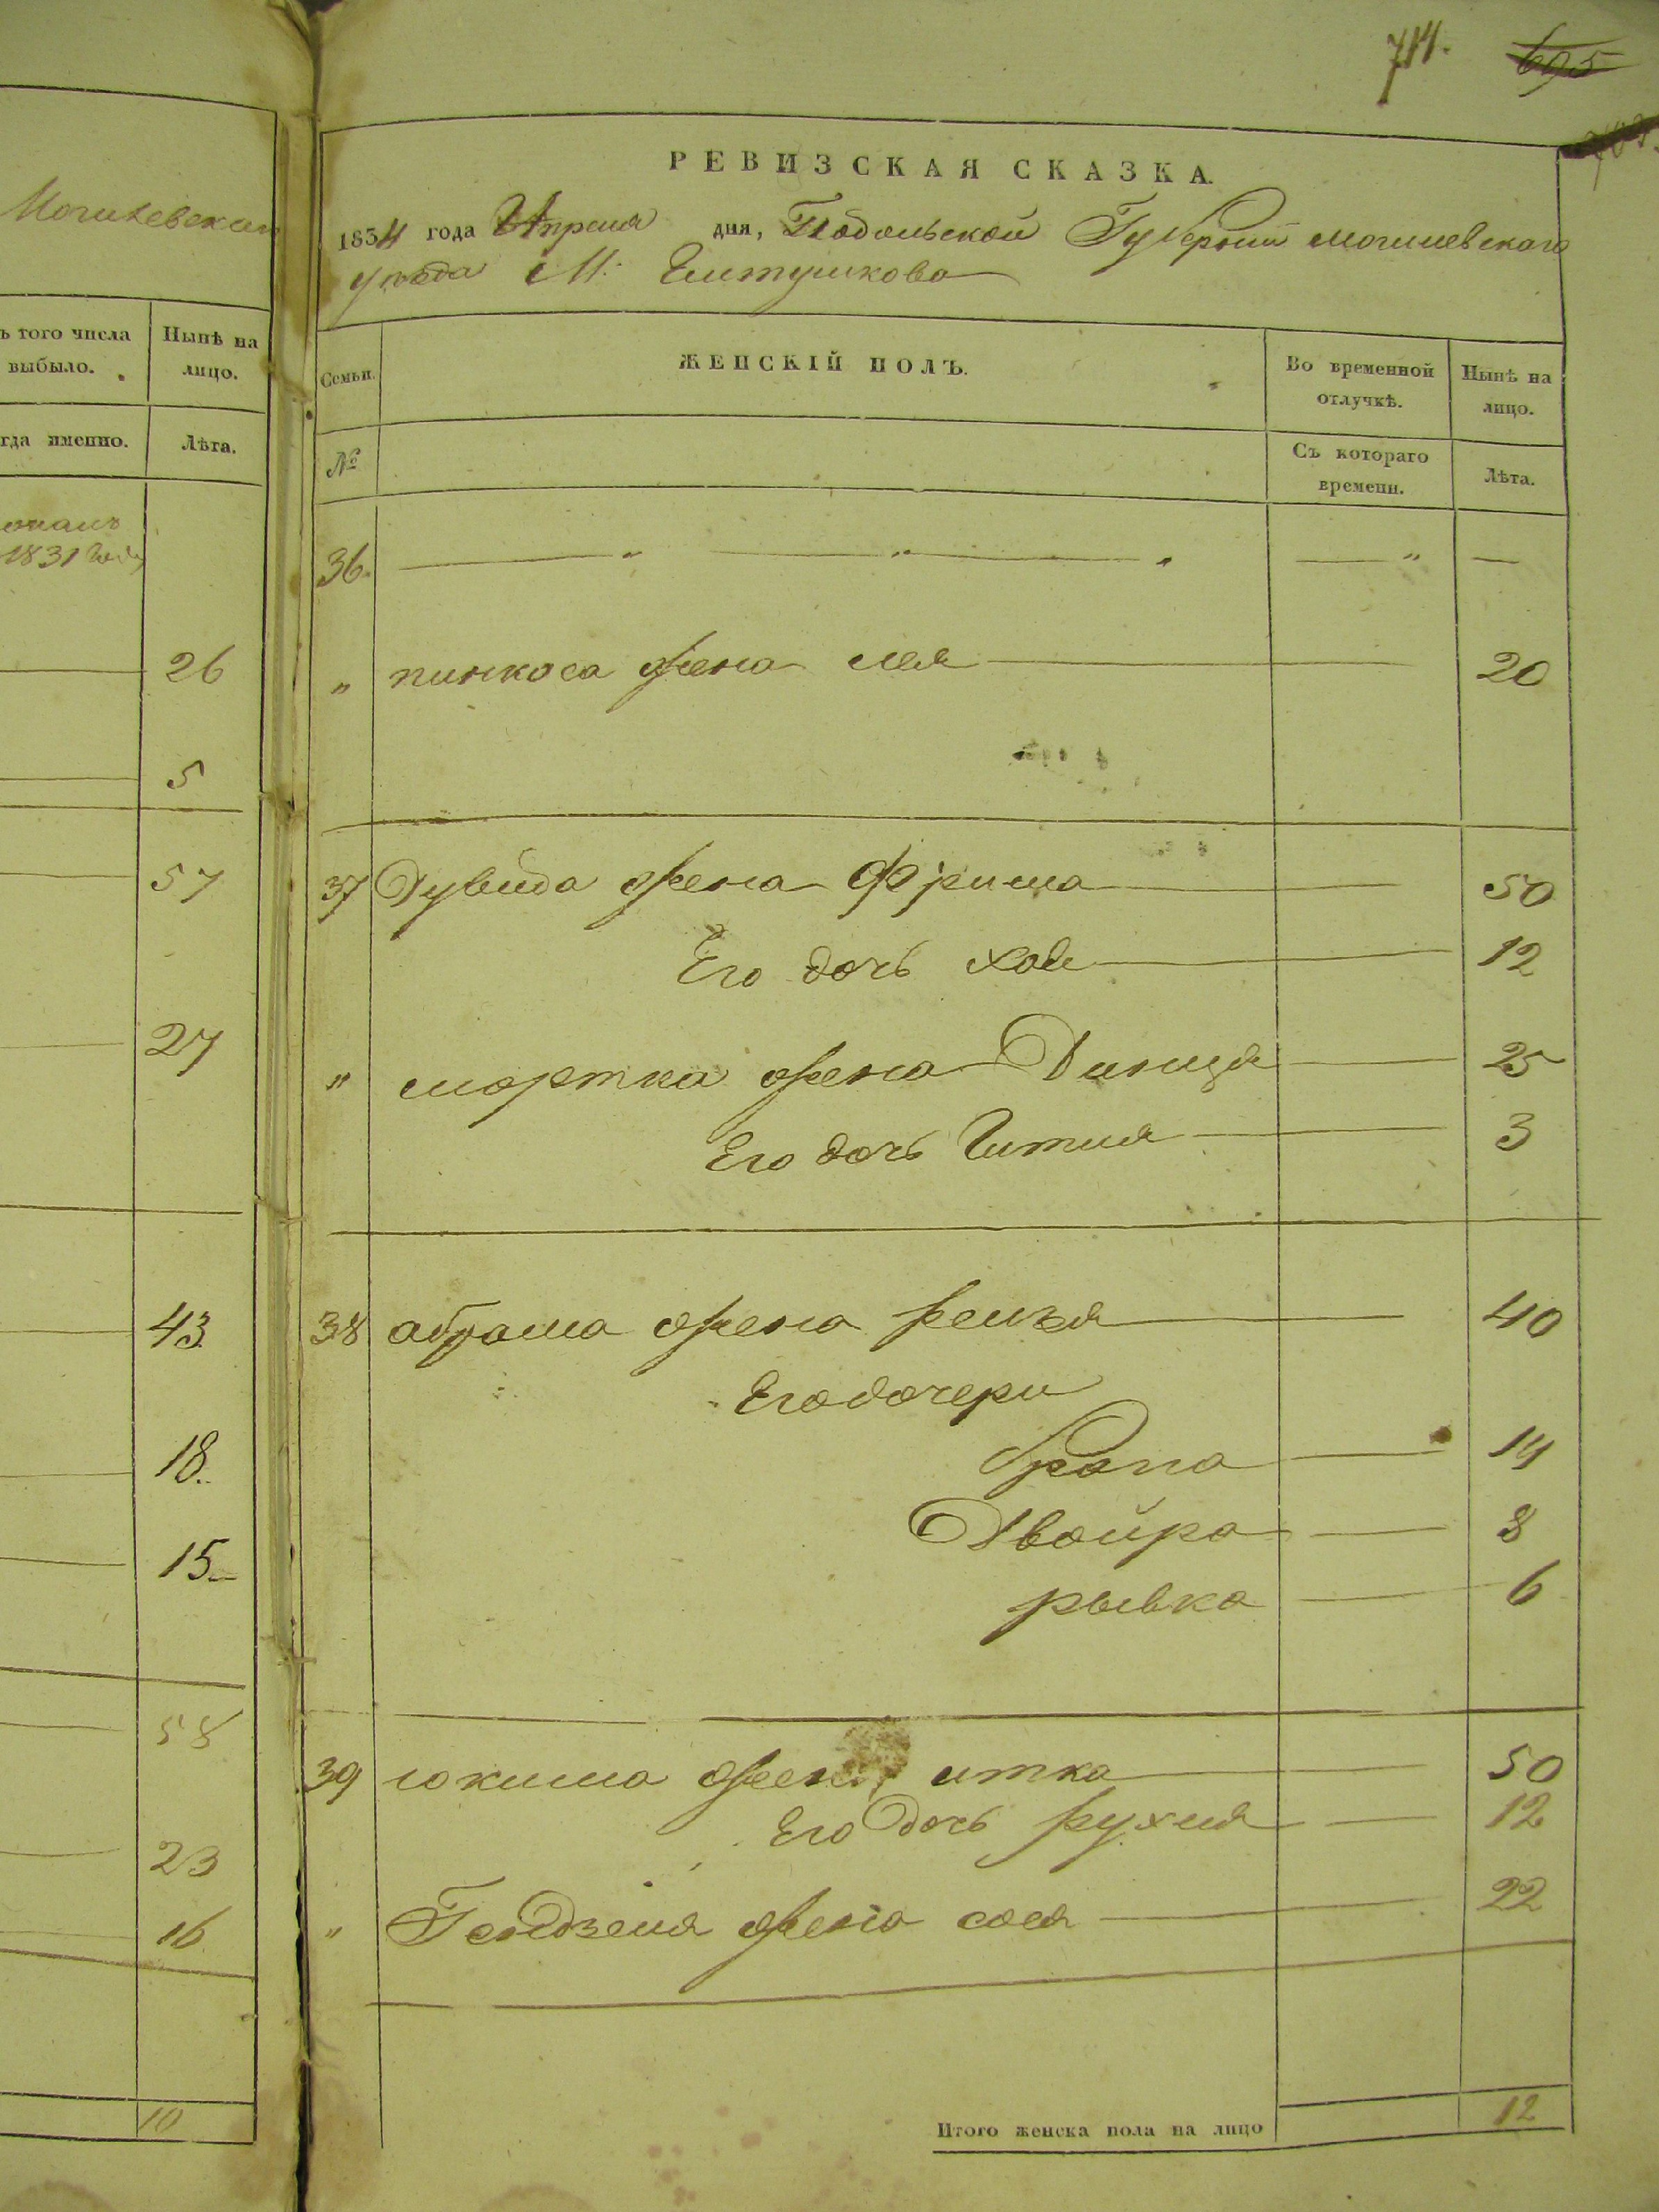 714. 695
Могилевскаго
ъ того числа выбыло. Нынѣ на лицо.
гда именно. Лѣта.
1831 года
26
5
57
27
43
18.
15
58
23
16
10
РЕВИЗСКАЯ СКАЗКА.
1834 года Апреля дня, Подольской Губернии могилевскаго
уезда М. Елтушкова
Семьи. ЖЕНСКІЙ ПОЛЪ. Во временной отлучкѣ. Нынѣ на лицо.
№ Съ котораго времени. Лѣта.
36. — " — " — " — " —
" пинкоса жена лея — 20
37 Дувида жена Фрима — 50
Его дочь хая — 12
" мортка жена Диница — 25
Его дочь Гитля — 3
38 абрама жена рейзя — 40
Его дочери
Трапа — 14
Двойра — 8
рывка — 6
39 юкима жена итка — 50
Его дочь рухля — 12
" жена сося — 22
Итого женска пола на лицо 12